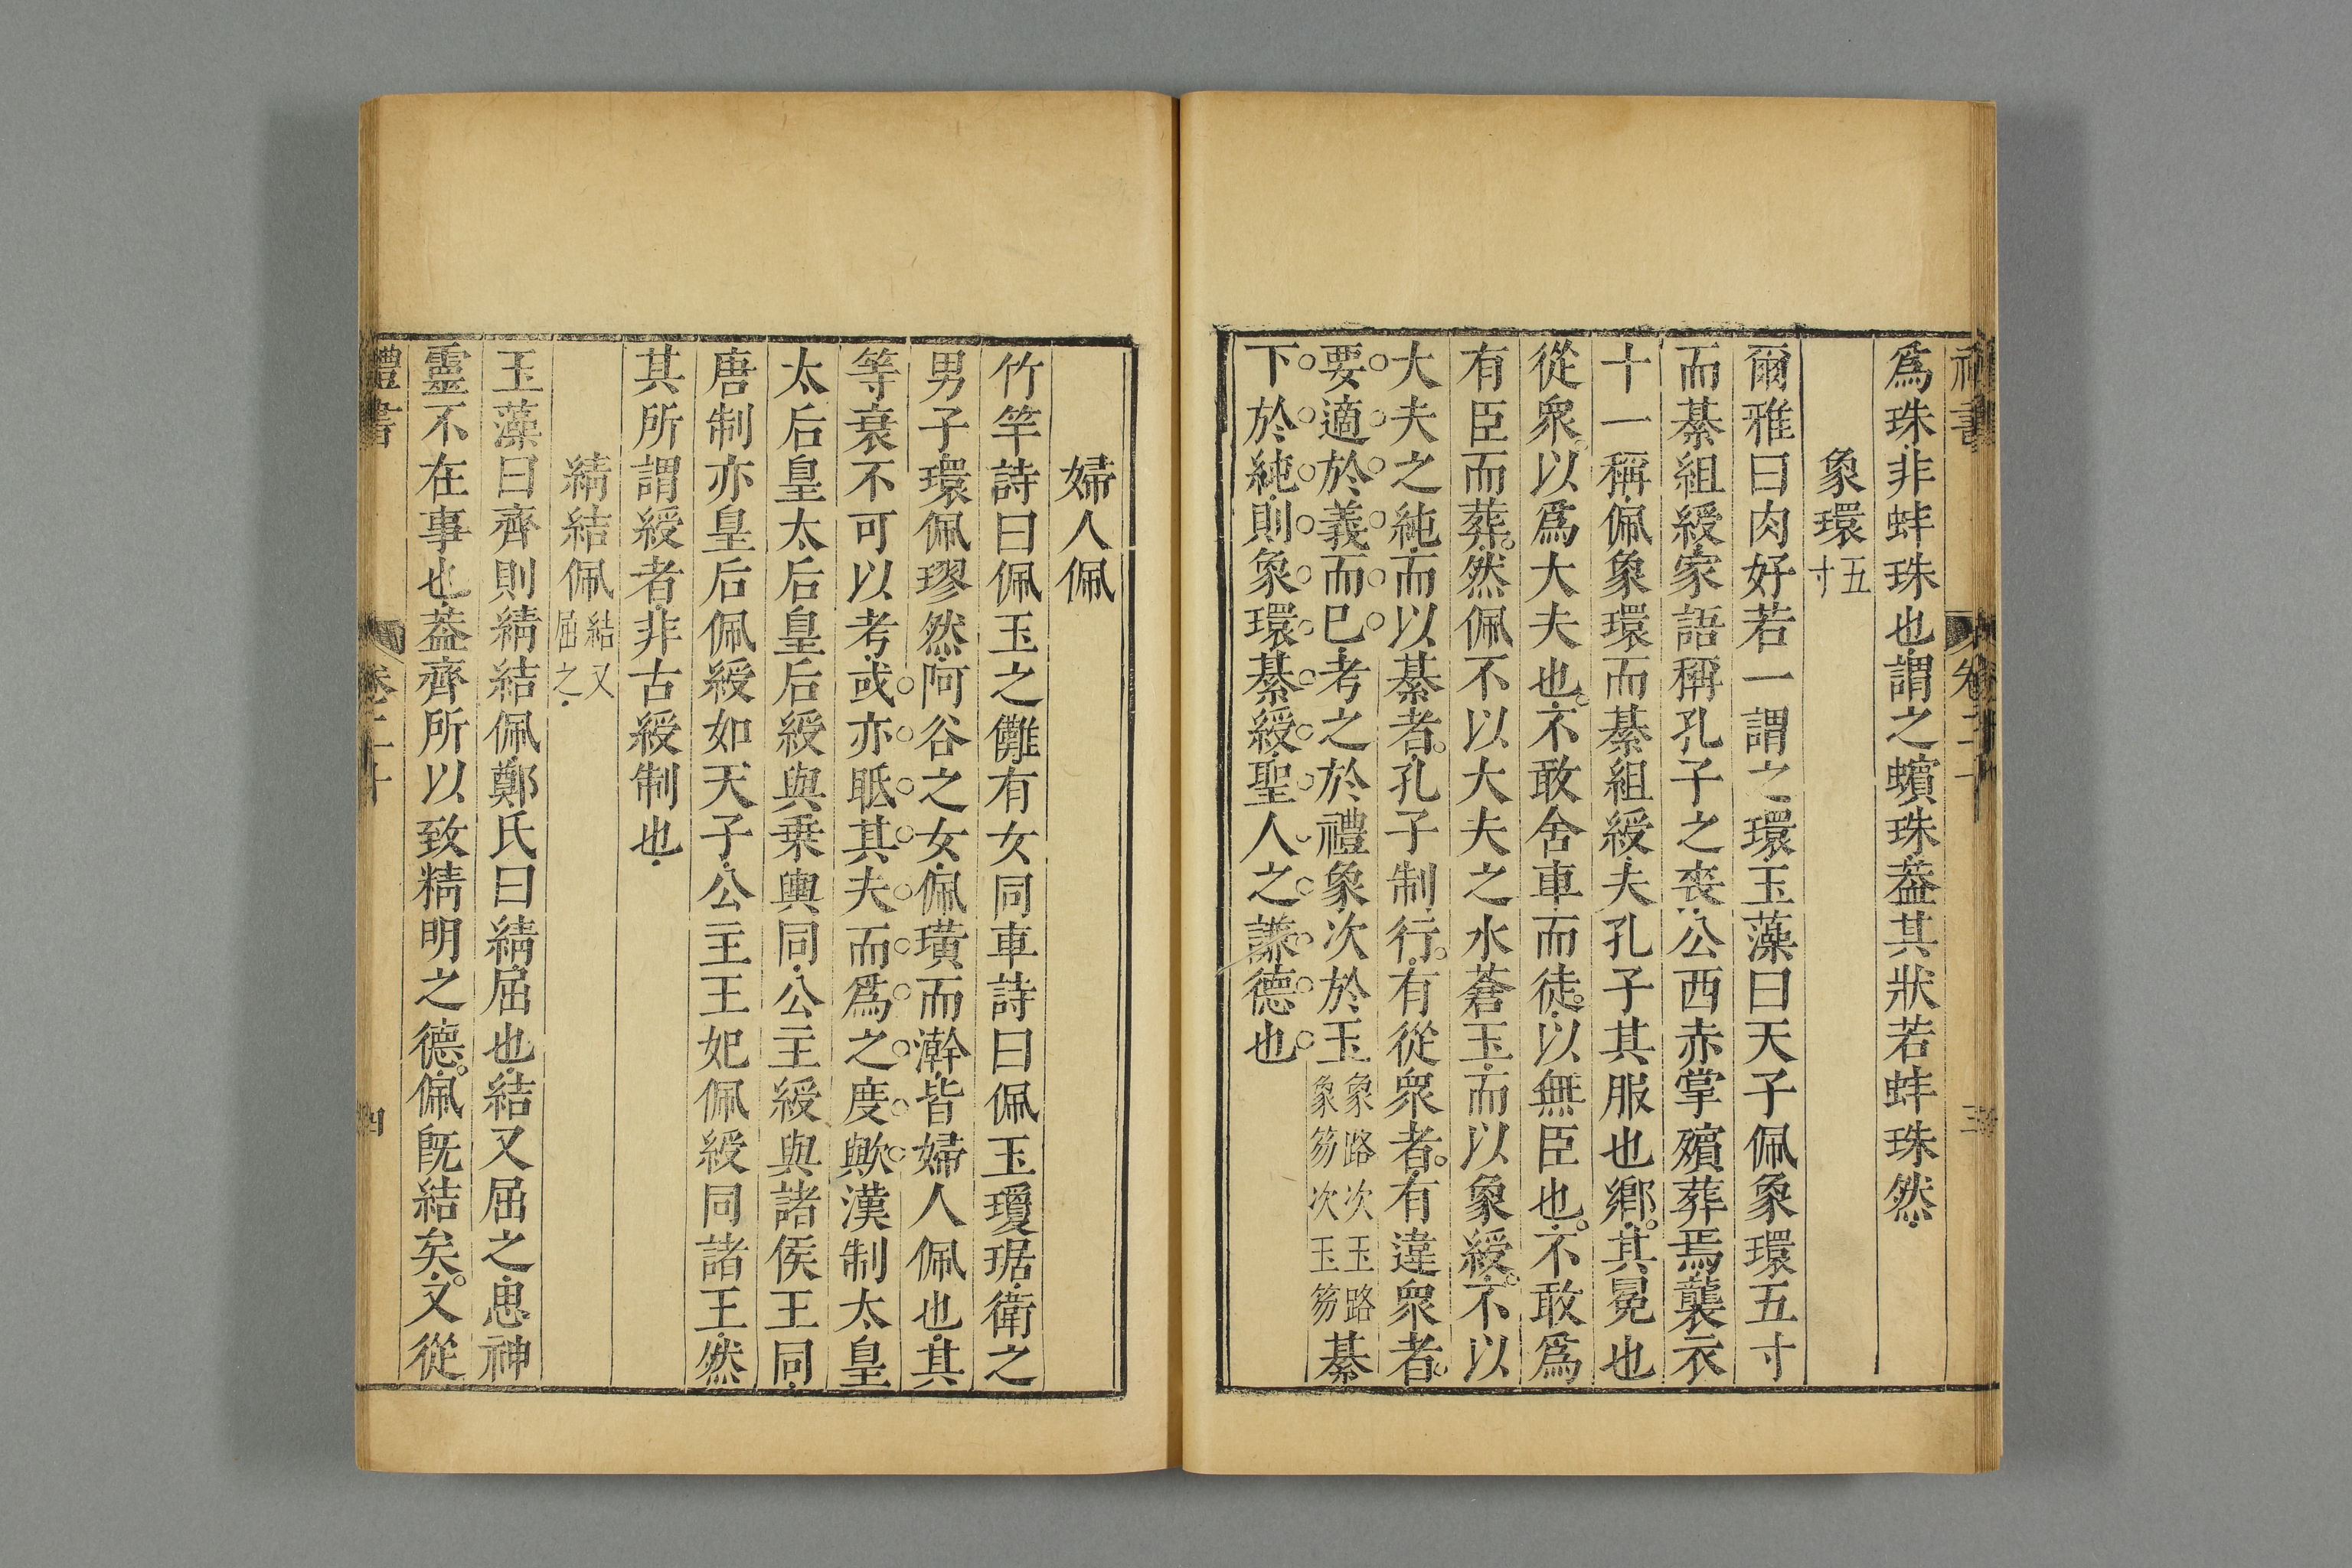 爲珠非蚌珠也謂之蠙珠葢其狀若蚌珠然
象環五寸
爾雅曰肉好若一謂之環玉藻曰天子佩象環五寸
而綦組綬家語稱孔子之喪公西赤掌殯葬焉襲衣
十一稱佩象環而綦組綬夫孔子其服也鄉其冕也
從衆以爲大夫也不敢舍車而徒以無臣也不敢爲
有臣而葬然佩不以大夫之水蒼玉而以象綬不以
大夫之純而以綦者孔子制行有從衆者有違衆者
要適於義而巳考之於禮象次於玉象路次玉路象笏次玉笏綦
下於純則象環綦綬聖人之謙德也
婦人佩
竹竿詩曰佩玉之儺有女同車詩曰佩玉瓊琚衛之
男子環佩璆然阿谷之女佩璜而澣皆婦人佩也其
等衰不可以考或亦眡其夫而爲之度歟漢制太皇
太后皇太后皇后綬與乗輿同公主綬與諸侯王同
唐制亦皇后佩綬如天子公主王妃佩綬同諸王然
其所謂綬者非古綬制也
綪結佩結又屈之
玉藻曰齊則綪結佩鄭氏曰綪屈也結又屈之思神
靈不在事也葢齊所以致精明之德佩旣結矣文從
禮書 卷二十 四